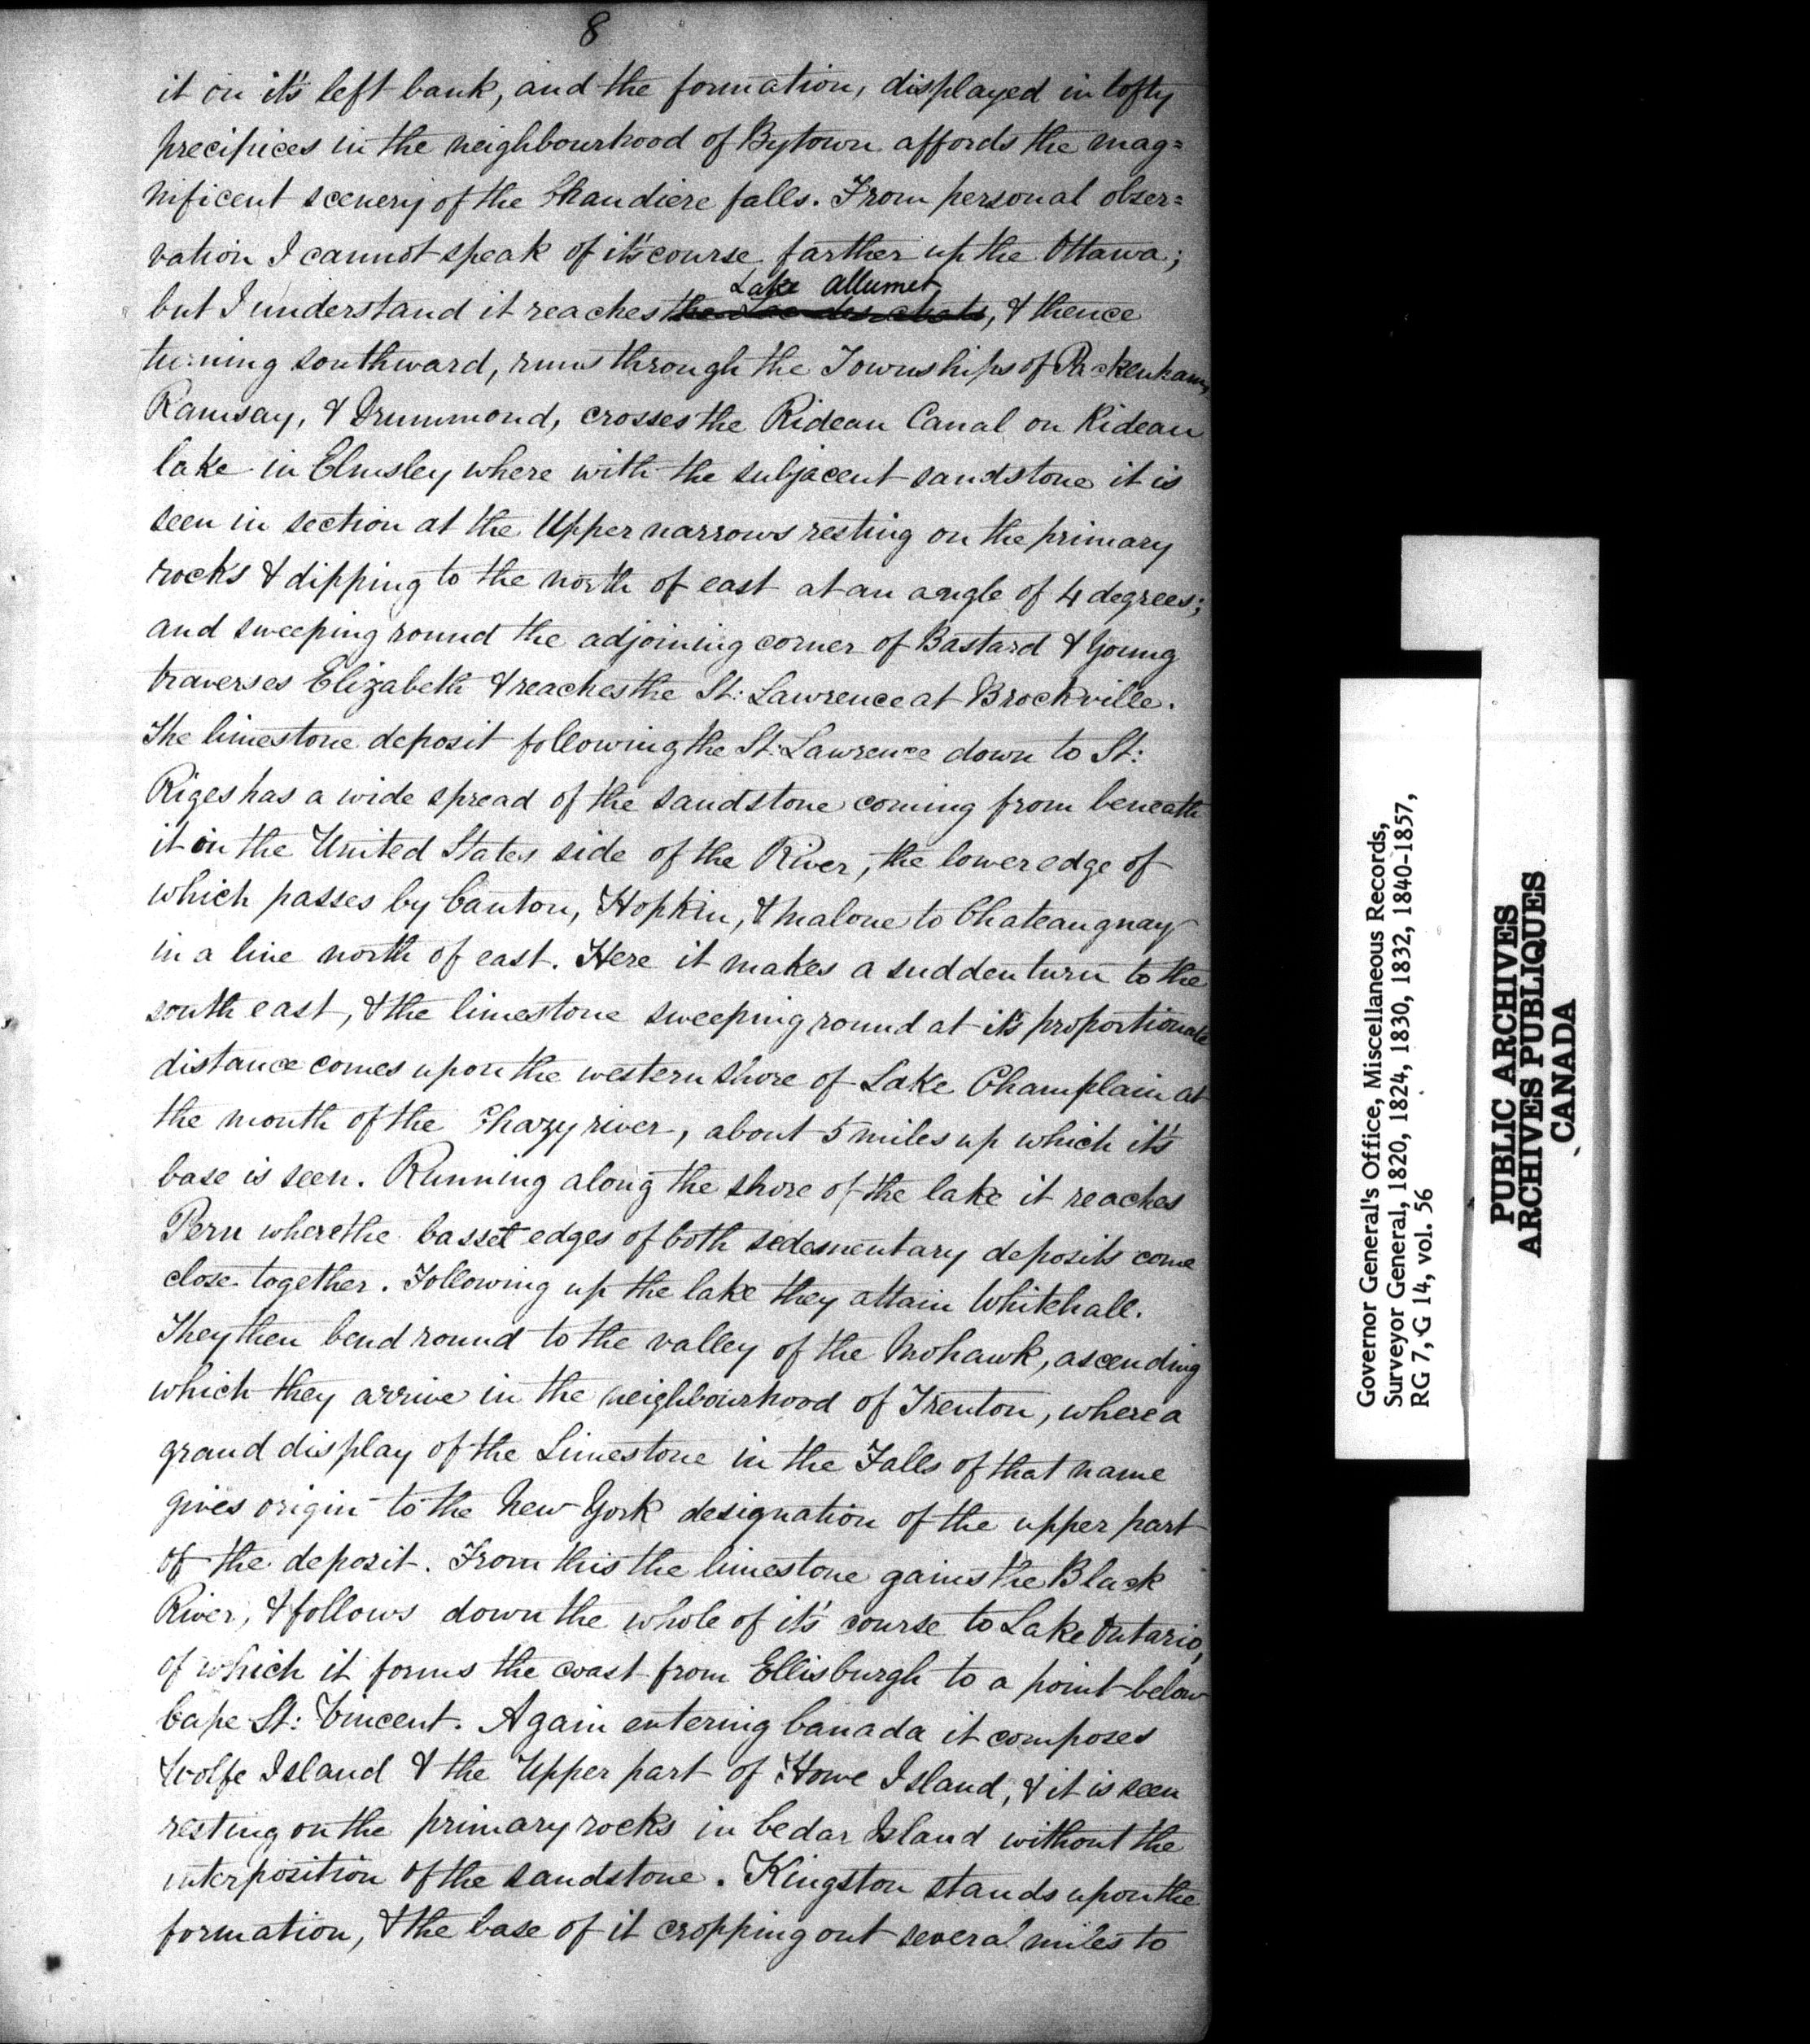 8
it on it's left bank, and the formation, displayed in lofty
precipices in the neighbourhood of Bytown affords the mag=
nificent scenery of the Chaudiere falls. From personal obser=
vation I cannot speak of it's course farther up the Ottawa;
Lake Allumet
but I understand it reaches the Lac des chats, & thence
turning southward, runs through the Townships of Packenham,
Ramsay, & Drummond, crosses the Rideau Canal on Rideau
lake in Elmsley where with the subjacent sandstone it is
seen in section at the Upper narrows resting on the primary
rocks & dipping to the north of east at an angle of 4 degrees;
and sweeping round the adjoining corner of Bastard & Young
traverses Elizabeth & reaches the St: Lawrence at Brockville.
The limestone deposit following the St: Lawrence down to St:
Riges has a wide spread of the sandstone coming from beneath
it on the United States side of the River, the lower edge of
which passes by Canton, Hopkin, & Malone to Chateaugnay
in a line north of east. Here it makes a sudden turn to the
south east, & the limestone sweeping round at it's proportionate
distance comes upon the western shore of Lake Champlain at
the mouth of the Chazy river, about 5 miles up which it's
base is seen. Running along the shore of the lake it reaches
Peru where the basset edges of both sedementary deposits come
close together. Following up the lake they attain Whitehall.
They then bend round to the valley of the Mohawk, ascending
which they arrive in the neighbourhood of Trenton, where a
grand display of the Limestone in the Falls of that name
gives origin to the New York designation of the upper part
of the deposit. From this the limestone gains the Black
River, & follows down the whole of it's course to Lake Ontario,
of which it forms the coast from Ellisburgh to a point below
Cape St: Vincent. Again entering Canada it composes
Wolfe Island & the Upper part of Howe Island, & it is seen
resting on the primary rocks in Cedar Island without the
interposition of the sandstone. Kingston stands upon the
formation, & the base of it cropping out several miles to
Governor General's Office, Miscellaneous Records,
Surveyor General, 1820, 1824, 1830, 1832, 1840-1857,
RG 7, G 14, vol. 56
PUBLIC ARCHIVES
ARCHIVES PUBLIQUES
CANADA